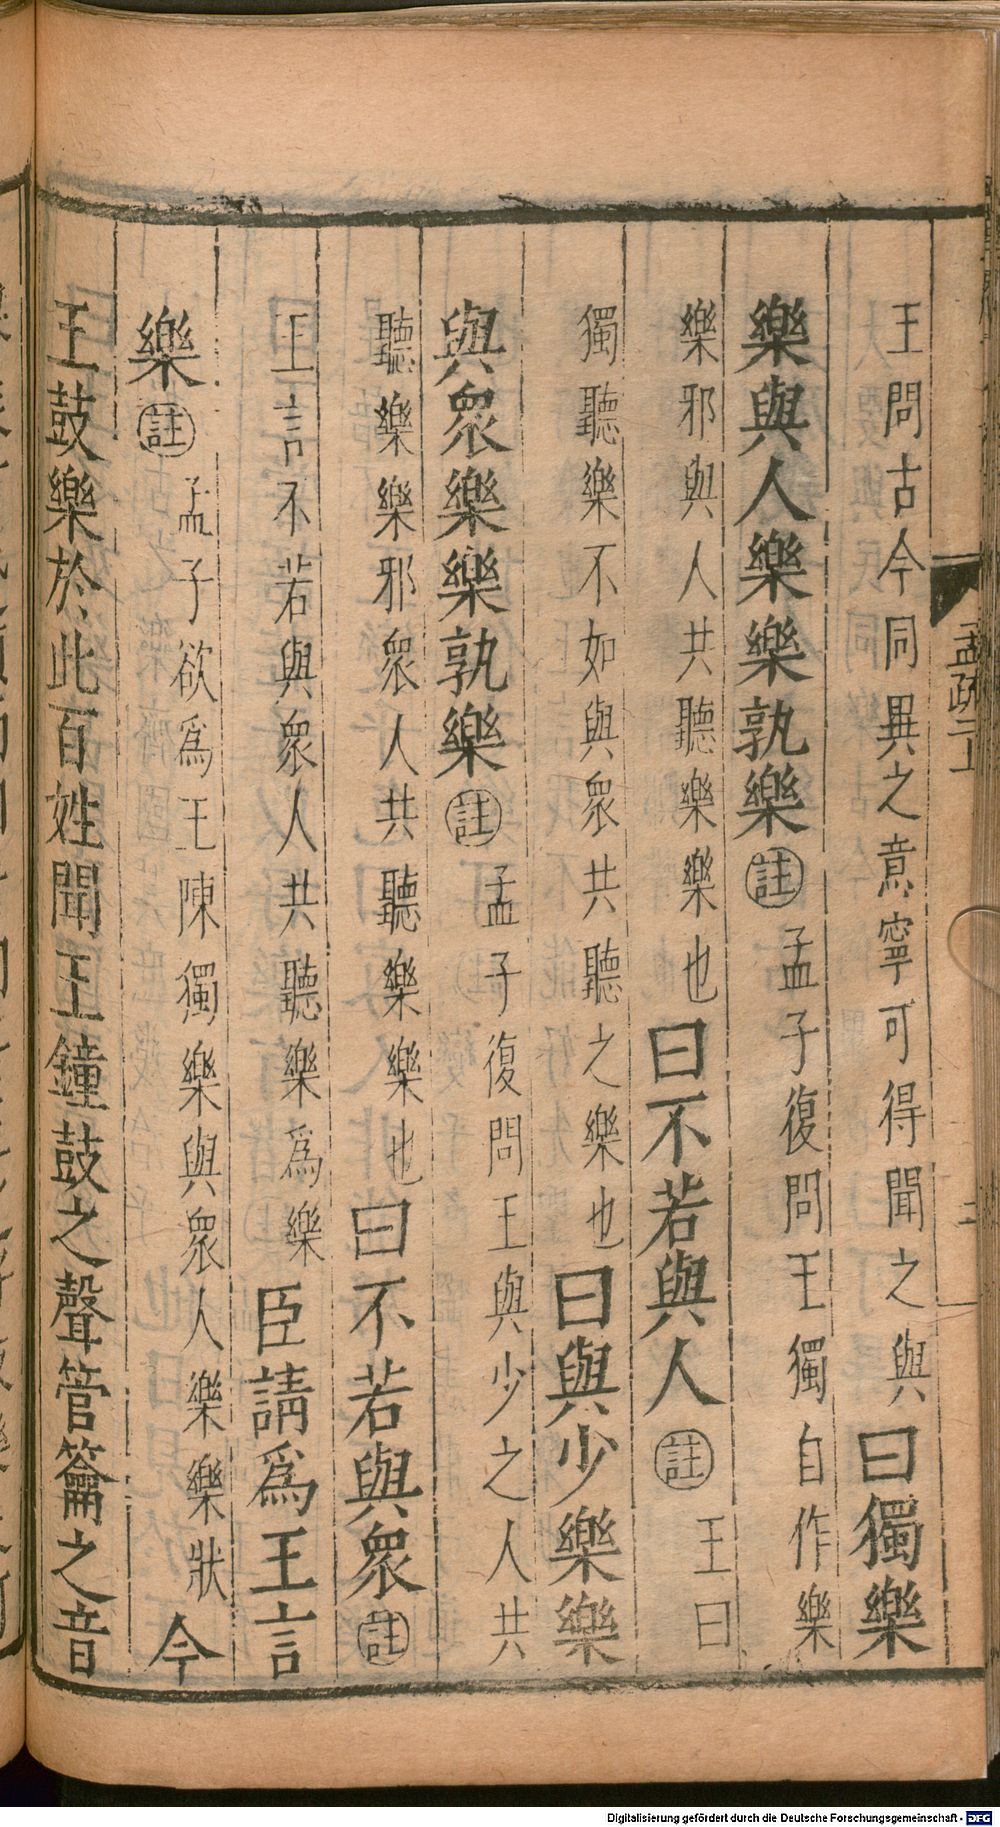 孟疏二上
二
王問古今同異之意寧可得聞之與曰獨樂
樂與人樂樂孰樂註孟子復問王獨自作樂
樂邪與人共聽樂樂也曰不若與人註王曰
獨聽樂不如與眾共聽之樂也曰與少樂樂
與眾樂樂孰樂註孟子復問王與少之人共
聽樂樂邪眾人共聽樂樂也曰不若與眾註
王言不若與眾人共聽樂為樂臣請為王言
樂註孟子欲為王陳獨樂與眾人樂樂狀今
王鼓樂於此百姓聞王鐘鼓之聲管籥之音
Digitalisierung gefördert durch die Deutsche Forschungsgemeinschaft - DFG